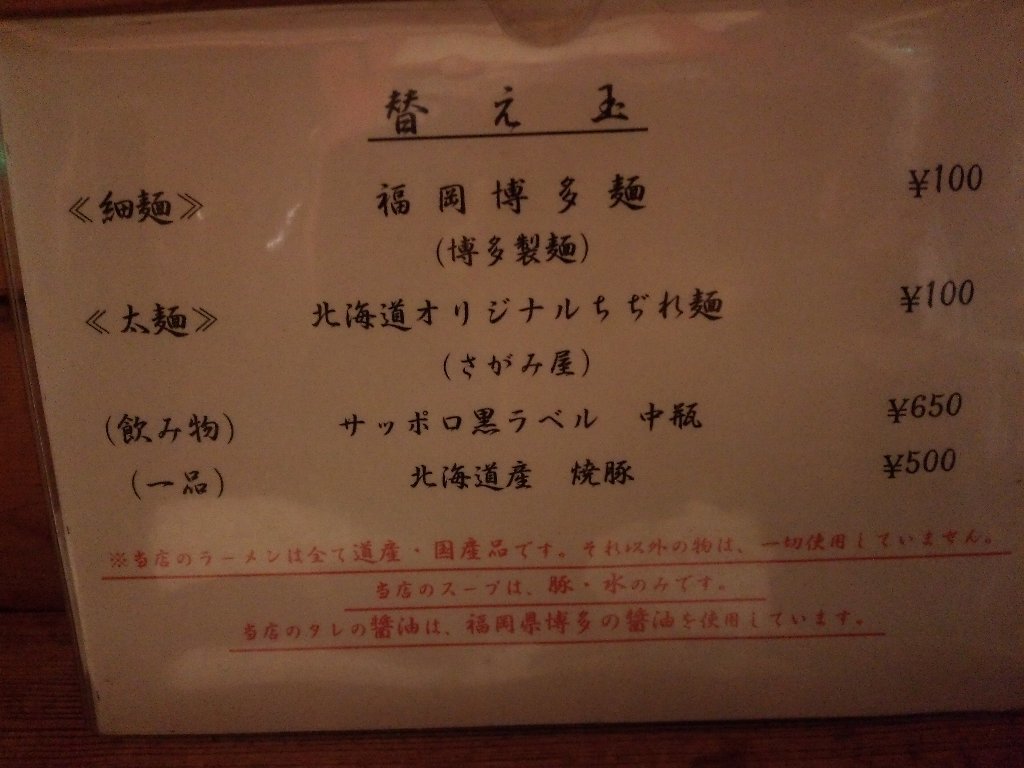 替え玉
≪細麺≫ 福岡博多麺 ¥100
(博多製麺)
≪太麺≫ 北海道オリジナルちぢれ麺 ¥100
(さがみ屋)
(飲み物) サッポロ黒ラベル 中瓶 ¥650
(一品) 北海道産 焼豚 ¥500
※当店のラーメンは全て道産・国産品です。それ以外の物は、一切使用していません。
当店のスープは、豚・水のみです。
当店のタレの醤油は、福岡県博多の醤油を使用しています。